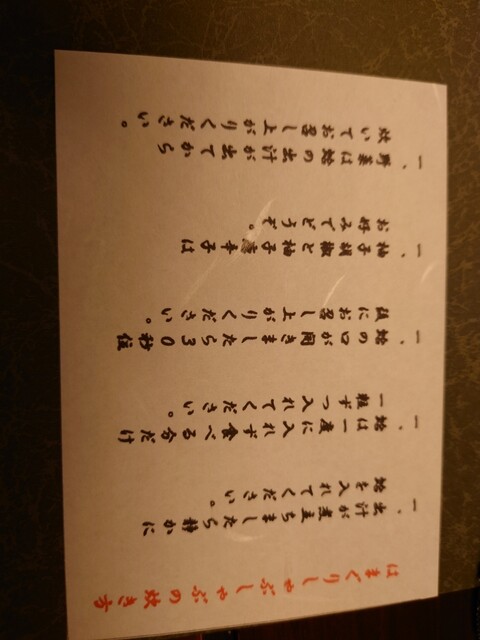 はまぐりしゃぶしゃぶの炊き方
一、出汁が煮立ちましたら静かに
蛤を入れてください。
一、蛤は一度に入れず食べる分だけ
一粒ずつ入れてください。
一、蛤の口が開きましたら30秒位
後にお召し上がりください。
一、柚子胡椒と柚子唐辛子は
お好みでどうぞ。
一、野菜は蛤の出汁が出てから
炊いてお召し上がりください。